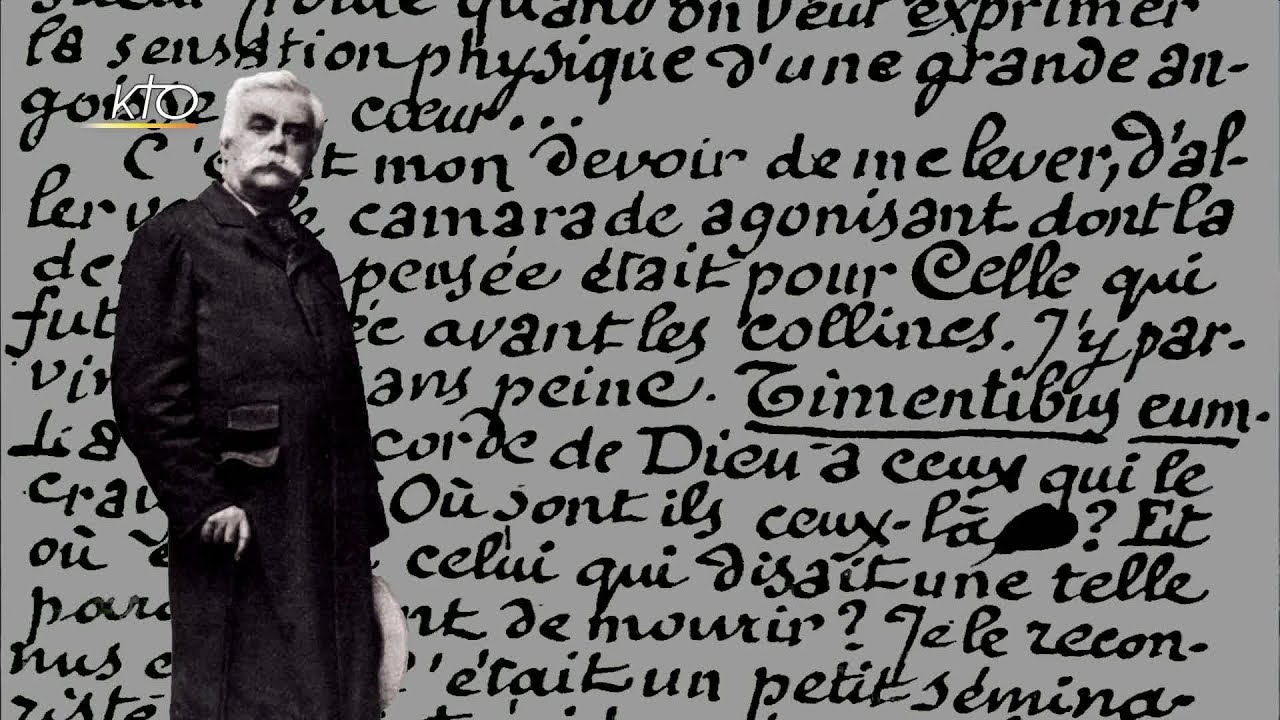 sueur froide quand on veut exprimer
la sensation physique d'une grande an-
goisse cœur...
kto
C' t mon devoir de me lever, d'al-
ler v le camarade agonisant dont la
de pensée était pour Celle qui
fut ée avant les collines. J'y par-
vin ans peine. Timentibus eum.
La corde de Dieu à ceux qui le
crai Où sont ils ceux-là ? Et
où é celui qui disait une telle
paro nt de mourir? Je le recon-
nus e C'était un petit sémina-
riste